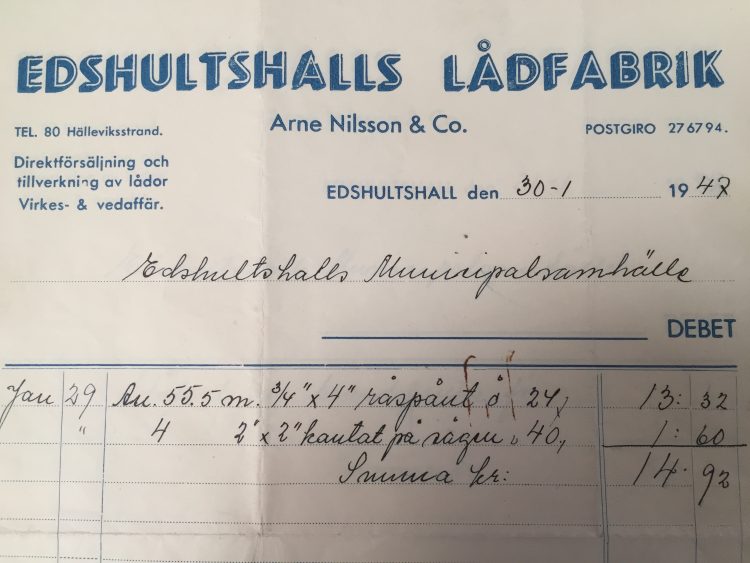 EDSHULTSHALLS LÅDFABRIK
TEL. 80 Hälleviksstrand.
Arne Nilsson & Co.
POSTGIRO 276794.
Direktförsäljning och
tillverkning av lådor
Virkes- & vedaffär.
EDSHULTSHALL den 30-1 1947
Edshultshalls Municipalsamhälle
DEBET
Jan 29 An. 55.5 m. 3/4" x 4" råspånt å 24, 13: 32
" 4 2" x 2" kantat på sågen " 40, 1: 60
Summa kr: 14. 92